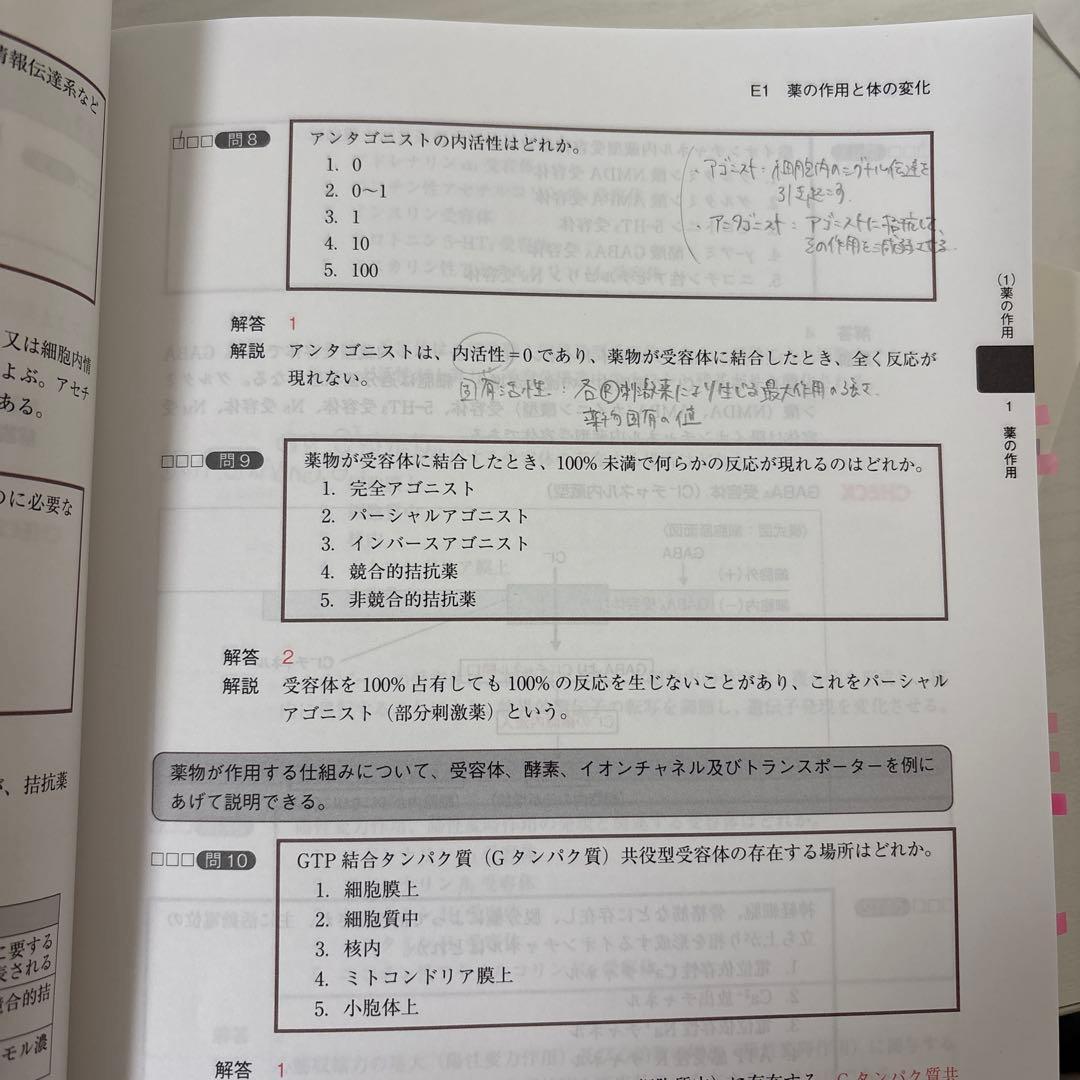 情報伝達系など
又は細胞内情
よぶ。アセチ
ある。
のに必要な
、拮抗薬
に要する
表される
競合的拮
モル濃
E1 薬の作用と体の変化
□□□ 問8 アンタゴニストの内活性はどれか。
1. 0
2. 0~1
3. 1
4. 10
5. 100
・アゴニスト:細胞内のシグナル伝達を
引き起こす.
・アンタゴニスト:アゴニストに拮抗して、
その作用を減弱させる
解答 1
解説 アンタゴニストは、内活性=0であり、薬物が受容体に結合したとき、全く反応が
現れない。
固有活性:各 刺激薬により生じる最大作用の強さ
薬物固有の値
□□□ 問9 薬物が受容体に結合したとき、100%未満で何らかの反応が現れるのはどれか。
1. 完全アゴニスト
2. パーシャルアゴニスト
3. インバースアゴニスト
4. 競合的拮抗薬
5. 非競合的拮抗薬
解答 2
解説 受容体を100%占有しても100%の反応を生じないことがあり、これをパーシャル
アゴニスト(部分刺激薬)という。
薬物が作用する仕組みについて、受容体、酵素、イオンチャネル及びトランスポーターを例に
あげて説明できる。
□□□ 問10 GTP結合タンパク質(Gタンパク質)共役型受容体の存在する場所はどれか。
1. 細胞膜上
2. 細胞質中
3. 核内
4. ミトコンドリア膜上
5. 小胞体上
解答 1
(1)薬の作用
1 薬の作用